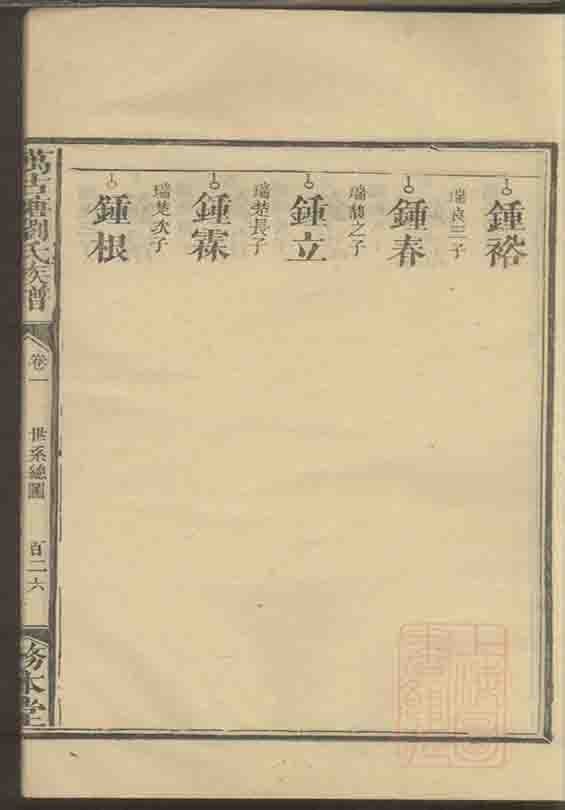 鍾裕
瑞良三子
鍾春
瑞馥之子
鍾立
瑞楚長子
鍾霖
瑞楚次子
鍾根
萬古塘劉氏族譜
卷一
世系總圖
百二六
務本堂